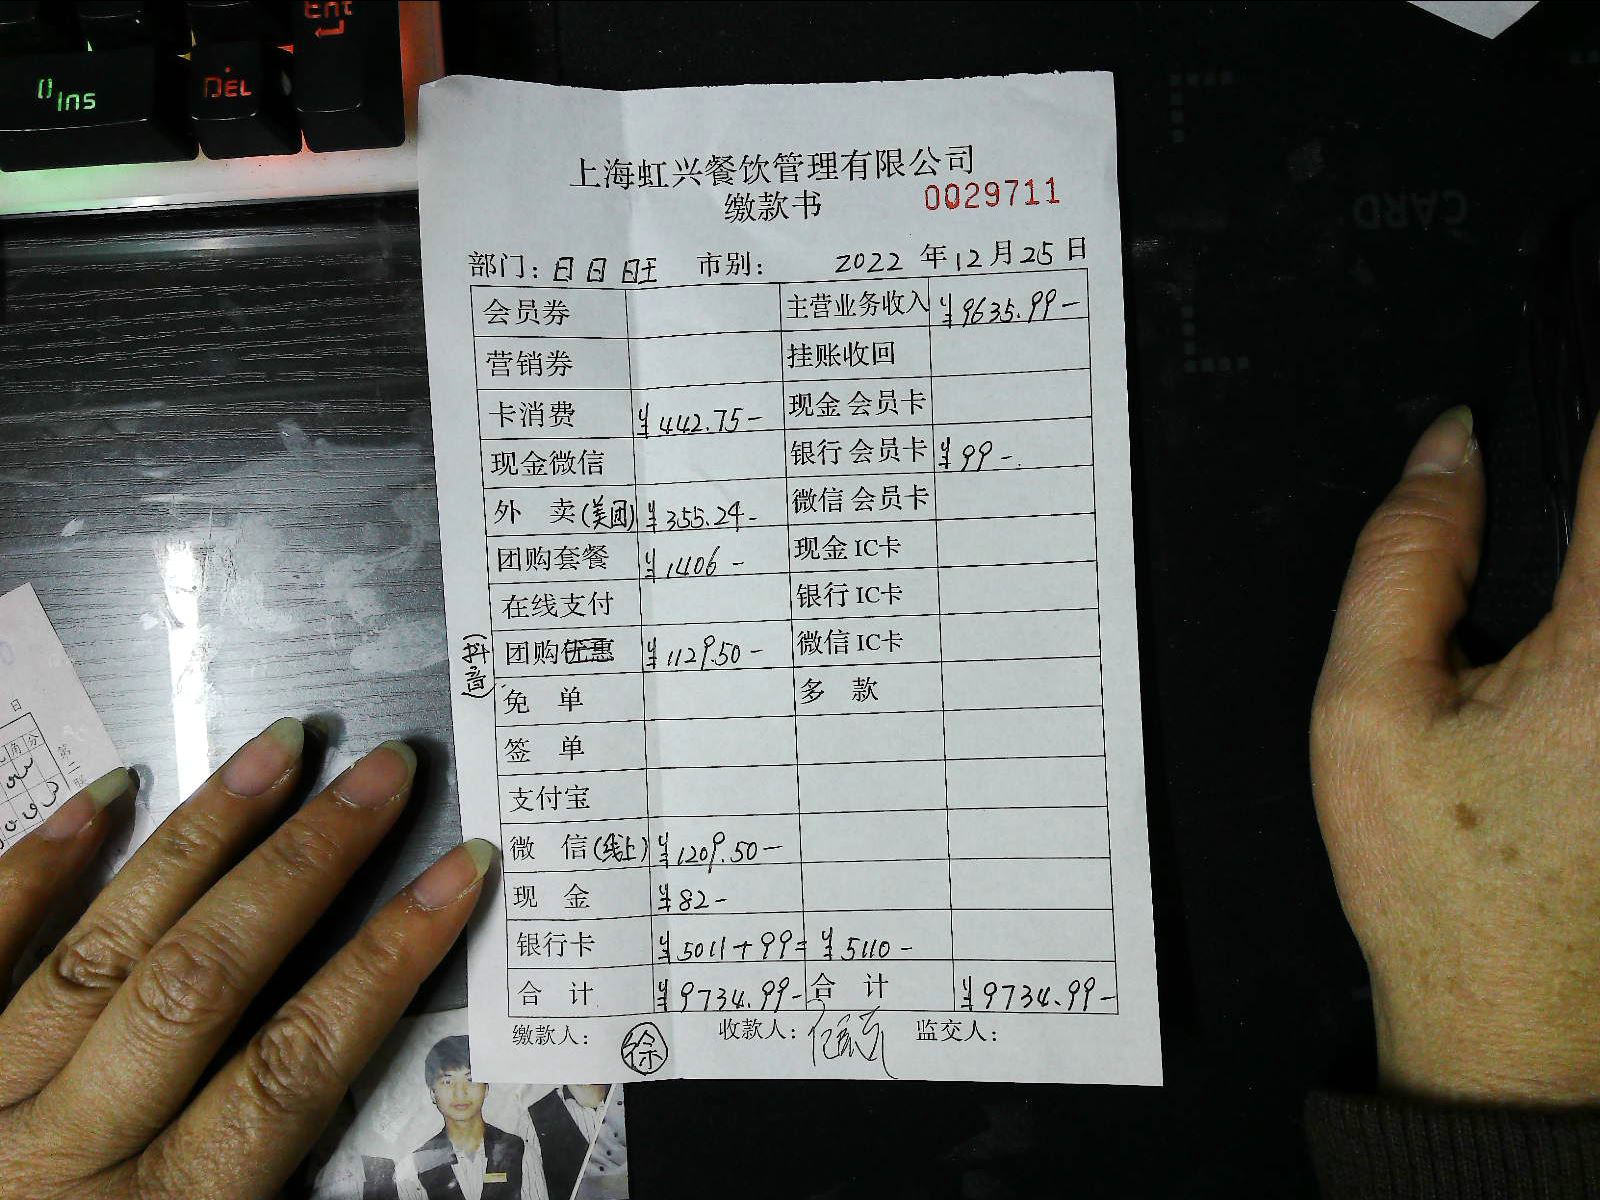 Ins
DEL
Ent
CARD
上海虹兴餐饮管理有限公司
缴款书 0029711
部门: 日日旺 市别: 2022 年 12 月 25 日
会员券 主营业务收入 ¥9635.99-
营销券 挂账收回
卡消费 ¥442.75- 现金 会员卡
现金微信 银行 会员卡 ¥99-
外 卖(美团) ¥355.24- 微信 会员卡
团购套餐 ¥1406- 现金 IC卡
在线支付 银行 IC卡
(抖音) 团购优惠 ¥1129.50- 微信 IC卡
免 单 多 款
签 单
支付宝
微 信(线上) ¥1209.50-
现 金 ¥82-
银行卡 ¥5011+99= ¥5110-
合 计 ¥9734.99- 合 计 ¥9734.99-
缴款人: 徐 收款人: 监交人:
日
角 分
第二联